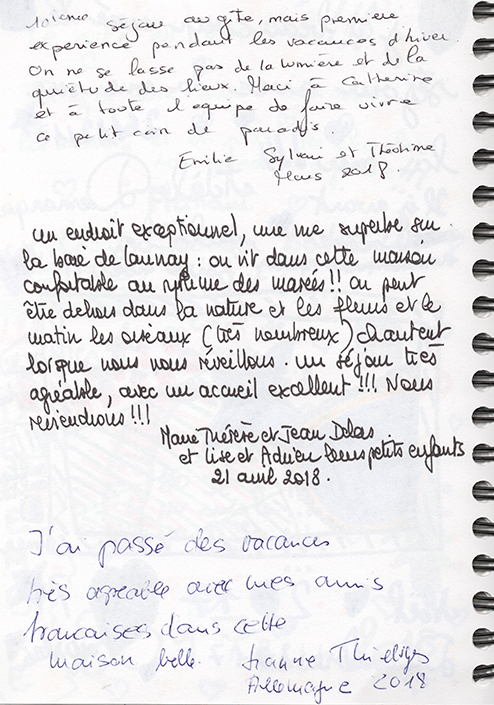 10ieme séjour au gîte, mais première
experience pendant les vacances d'hiver.
On ne se lasse pas de la lumière et de la
quiétude des lieux. Merci à Catherine
et à toute l'equipe de faire vivre
ce petit coin de paradis.
Emilie Sylvain et Théotime
Mars 2018.
un endroit exceptionnel, une vue superbe sur
la baie de Launay : on vit dans cette maison
confortable au rythme des marées !! on peut
être dehors dans la nature et les fleurs et le
matin les oiseaux (très nombreux) chantent
lorsque nous nous réveillons. un séjour très
agréable, avec un accueil excellent !!! Nous
reviendrons !!!
Marie Thérèse et Jean
et Lise et Adrien leurs petits enfants
21 avril 2018.
J'ai passé des vacances
très agreable avec mes amis
francaises dans cette
maison belle.
Allemagne 2018